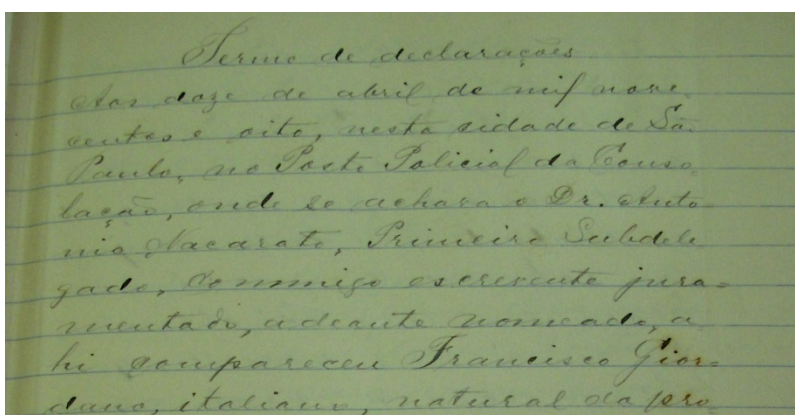 Termo de declarações
Aos doze de abril de mil nove
centos e oito, nesta cidade de São
Paulo, no Posto Policial da Conso-
lação, onde se achava o Dr. Anto
nio Nacarato, Primeiro Subdele
gado, commigo escrevente jura=
mentado, adeante nomeado, a
hi compareceu Francisco Gior=
dano, italiano, natural da pro